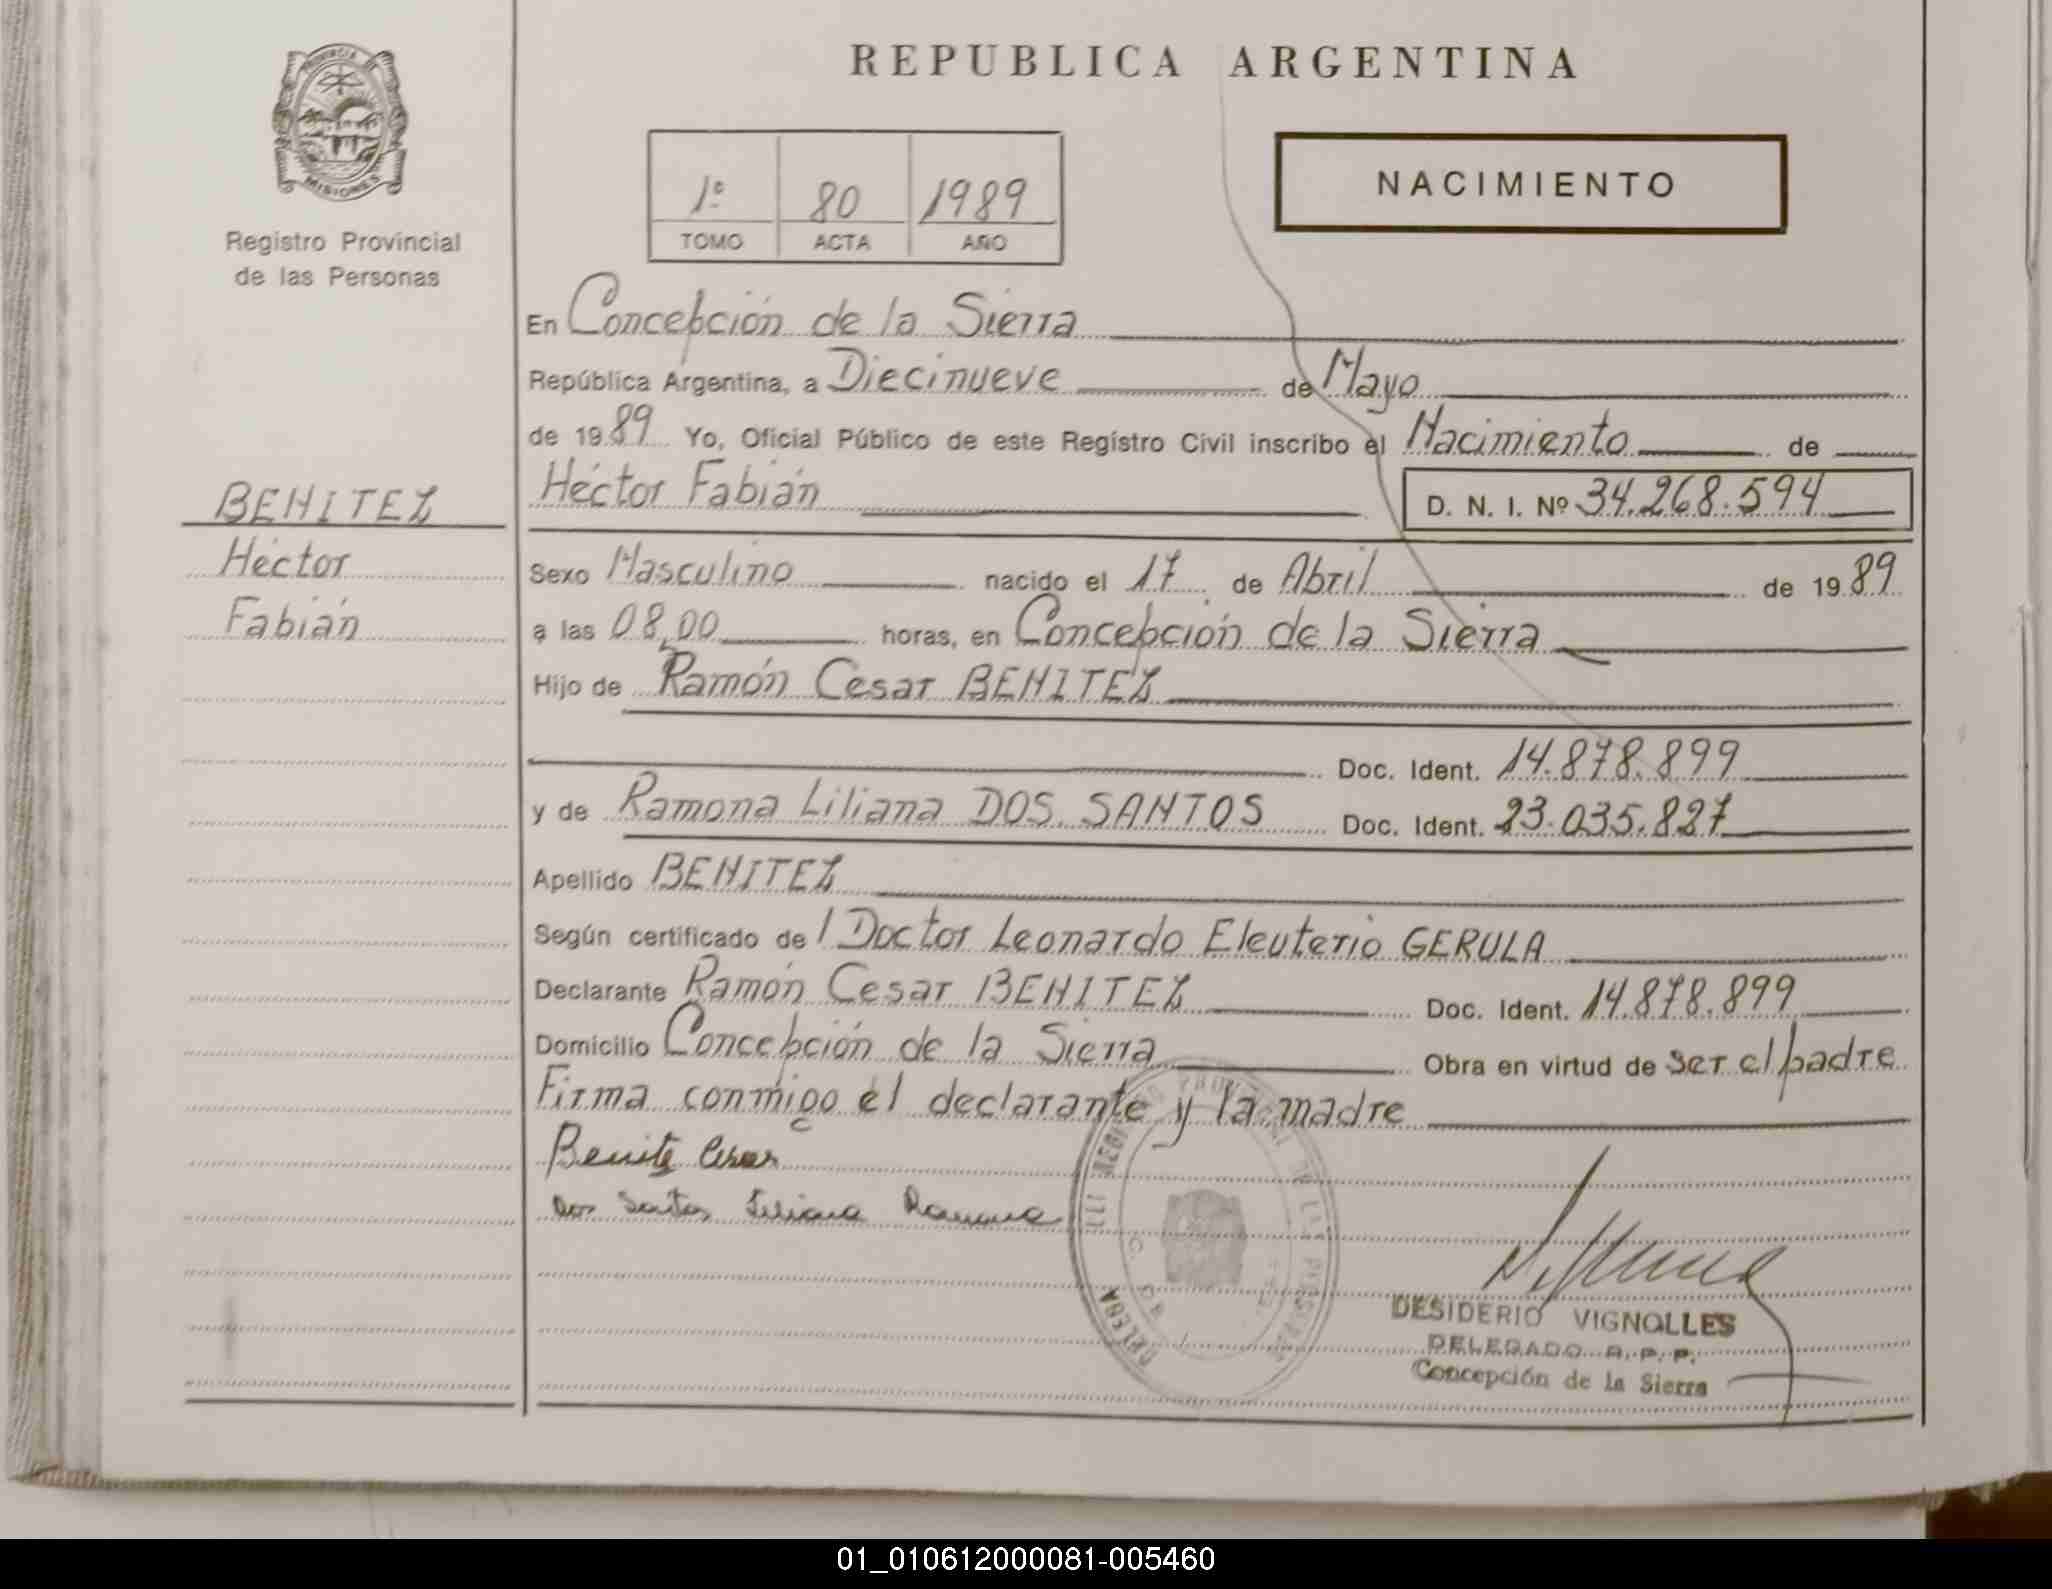 REPUBLICA ARGENTINA
PROVINCIA DE
MISIONES
Registro Provincial
de las Personas
1º 80 1989
TOMO ACTA AÑO
NACIMIENTO
En Concepción de la Sierra
República Argentina, a Diecinueve de Mayo
de 1989 Yo, Oficial Público de este Registro Civil inscribo el Nacimiento de
Héctor Fabián
D. N. I. Nº 34.268.594
BENITEZ
Héctor
Fabián
Sexo Masculino nacido el 17 de Abril de 1989
a las 08,00 horas, en Concepción de la Sierra
Hijo de Ramón Cesar BENITEZ
Doc. Ident. 14.878.899
y de Ramona Liliana DOS SANTOS Doc. Ident. 23.035.827
Apellido BENITEZ
Según certificado de l Doctor Leonardo Eleuterio GERULA
Declarante Ramón Cesar BENITEZ Doc. Ident. 14.878.899
Domicilio Concepción de la Sierra Obra en virtud de ser el padre
Firma conmigo el declarante y la madre
Benite Cesar
Dos Santos Liliana Ramona
DESIDERIO VIGNOLLES
DELEGADO R. P. P.
Concepción de la Sierra
01_010612000081-005460